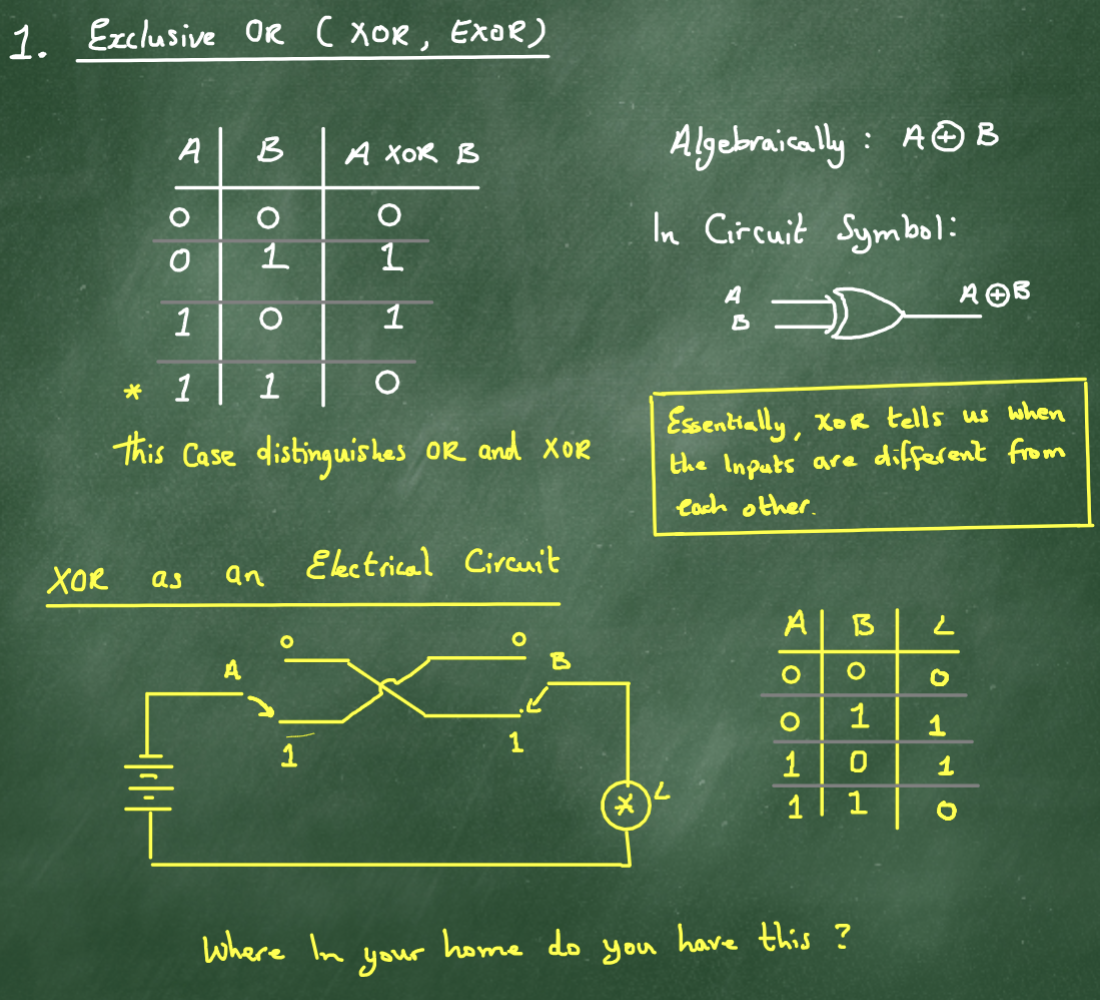 1. Exclusive OR ( XOR, EXOR)
A B A XOR B
0 0 0
0 1 1
1 0 1
* 1 1 0
This Case distinguishes OR and XOR
Algebraically : A ⊕ B
In Circuit Symbol:
A
B
A ⊕ B
Essentially, XOR tells us when
the Inputs are different from
each other.
XOR as an Electrical Circuit
0 0
A B
1 1
L
A B L
0 0 0
0 1 1
1 0 1
1 1 0
Where In your home do you have this ?